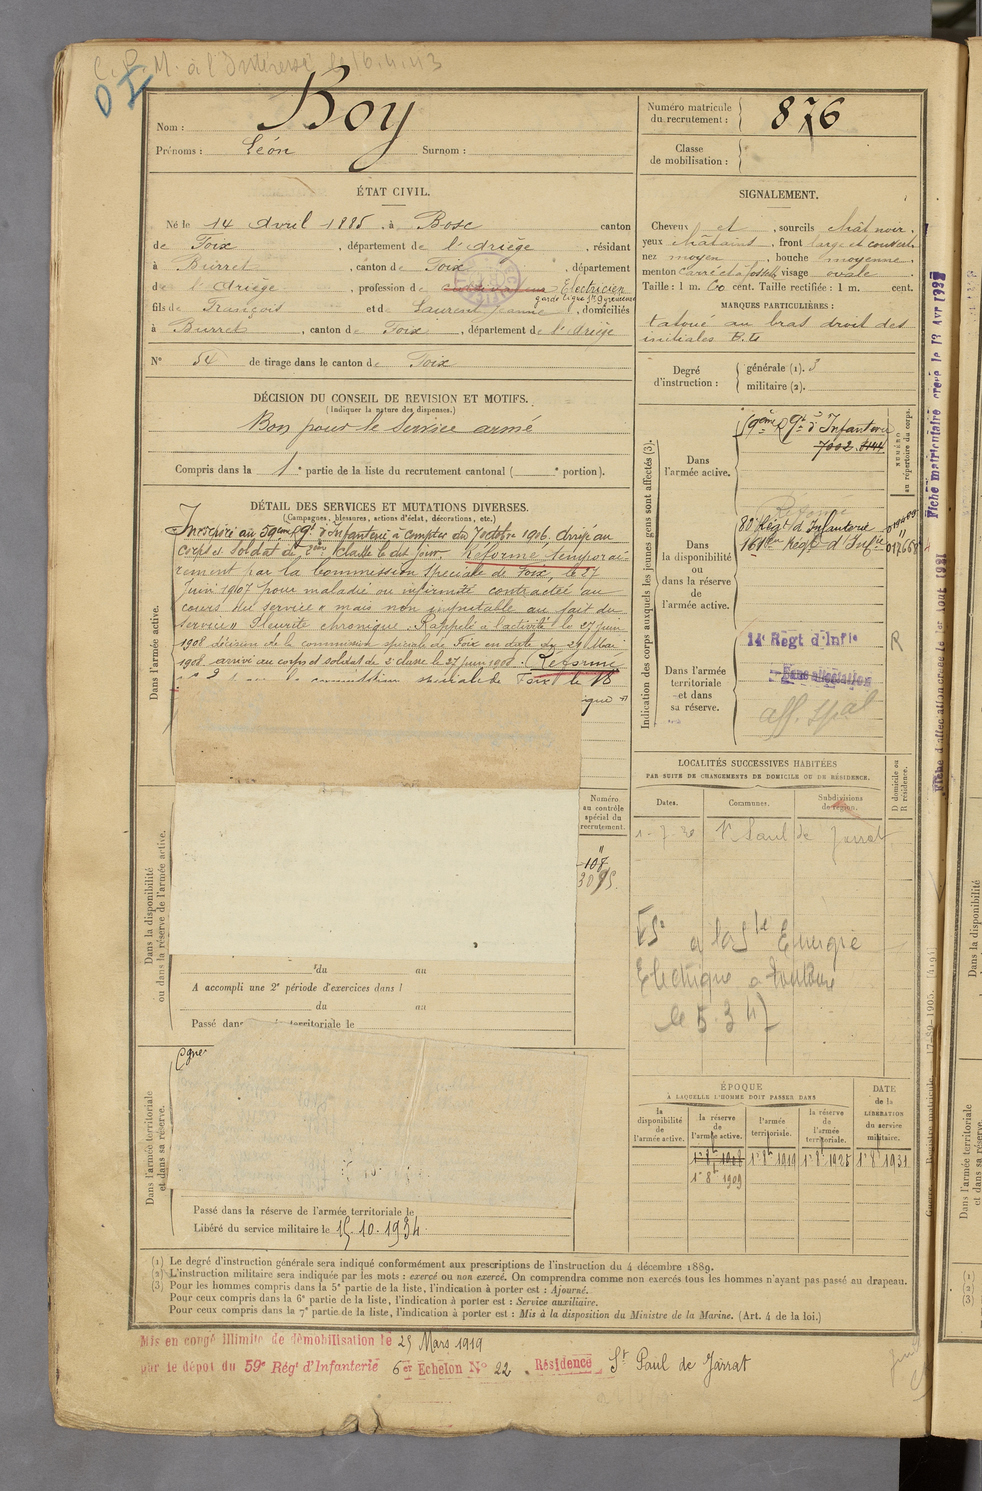 C. P. M. à l'Intéressé le 16.4.43
Nom : Boy
Prénoms : Léon Surnom :
Numéro matricule du recrutement : 876
Classe de mobilisation :
ÉTAT CIVIL.
Né le 14 Avril 1885, à Bosc canton
de Foix, département de l'Ariège, résidant
à Burret, canton de Foix, département
de l'Ariège, profession de Electricien
fils de François et de Laurent Jeanne, domiciliés
à Burret, canton de Foix, département de l'Ariège
N° 54 de tirage dans le canton de Foix
DÉCISION DU CONSEIL DE REVISION ET MOTIFS.
(Indiquer la nature des dispenses.)
Bon pour le Service armé
Compris dans la 1e partie de la liste du recrutement cantonal ( e portion).
SIGNALEMENT.
Cheveux et, sourcils chât noir,
yeux châtains, front large et couvert,
nez moyen, bouche moyenne,
menton carré et à fossette visage ovale
Taille : 1 m. 60 cent. Taille rectifiée : 1 m. cent.
MARQUES PARTICULIÈRES :
tatoué au bras droit des
initiales B.L
Degré d'instruction : générale (1). 3
militaire (2).
DÉTAIL DES SERVICES ET MUTATIONS DIVERSES.
(Campagnes, blessures, actions d'éclat, décorations, etc.)
Incorporé au 59ème Rgt d'Infanterie à compter du 7 octobre 1906. Arrivé au
corps et soldat de 2ème classe le dit jour. Réformé temporai-
rement par la Commission spéciale de Foix, le 27
Juin 1907 pour maladie ou infirmité contractée au
cours du service « mais non imputable au fait du
service » Pleurite chronique. Rappelé à l'activité le 27 juin
1908 décision de la commission spéciale de Foix en date du 29 Mai
1908. arrivé au corps et soldat de 2e classe le 27 juin 1908. (Réformé
la commission spéciale de Foix le 18
ique »
Dans l'armée active.
Dans la disponibilité
ou dans la réserve de l'armée active.
Dans l'armée territoriale
et dans sa réserve.
Numéro au contrôle spécial du recrutement.
107
du au
A accompli une 2e période d'exercices dans l
du au
Passé dans territoriale le
Passé dans la réserve de l'armée territoriale le
Libéré du service militaire le 15.10.1934
Indication des corps auxquels les jeunes gens sont affectés (3).
NUMÉRO au répertoire du corps.
Dans l'armée active.
59ème Rgt d'Infanterie
7002
Dans la disponibilité ou dans la réserve de l'armée active.
Réformé
80e Régt d'Infanterie
Régt d'Infie
Dans l'armée territoriale et dans sa réserve.
14e Regt d'Infie
R
Sans affectation
aff. spal
LOCALITÉS SUCCESSIVES HABITÉES
PAR SUITE DE CHANGEMENTS DE DOMICILE OU DE RÉSIDENCE.
Dates. Communes. Subdivisions de région. D domicile ou R résidence.
1-7-30 St Paul de Jarrat
à la Sté Energie
Electrique à Toulouse
le 5.3.47
ÉPOQUE
À LAQUELLE L'HOMME DOIT PASSER DANS
DATE de la LIBÉRATION du service militaire.
la disponibilité de l'armée active.
la réserve de l'armée active.
l'armée territoriale.
la réserve de l'armée territoriale.
1r 8t 1908 1r 8t 1919 1r 8t 1925 1r 8t 1931
1r 8t 1909
(1) Le degré d'instruction générale sera indiqué conformément aux prescriptions de l'instruction du 4 décembre 1889.
(2) L'instruction militaire sera indiquée par les mots : exercé ou non exercé. On comprendra comme non exercés tous les hommes n'ayant pas passé au drapeau.
(3) Pour les hommes compris dans la 5e partie de la liste, l'indication à porter est : Ajourné.
Pour ceux compris dans la 6e partie de la liste, l'indication à porter est : Service auxiliaire.
Pour ceux compris dans la 7e partie de la liste, l'indication à porter est : Mis à la disposition du Ministre de la Marine. (Art. 4 de la loi.)
Mis en congé illimité de démobilisation le 25 Mars 1919
par le dépôt du 59e Régt d'Infanterie 6e Echelon No 22. Résidence St Paul de Jarrat
Fiche matriculaire créée le 13 Avr 1938
Fiche d'affectation créée le 1er Aout 1931